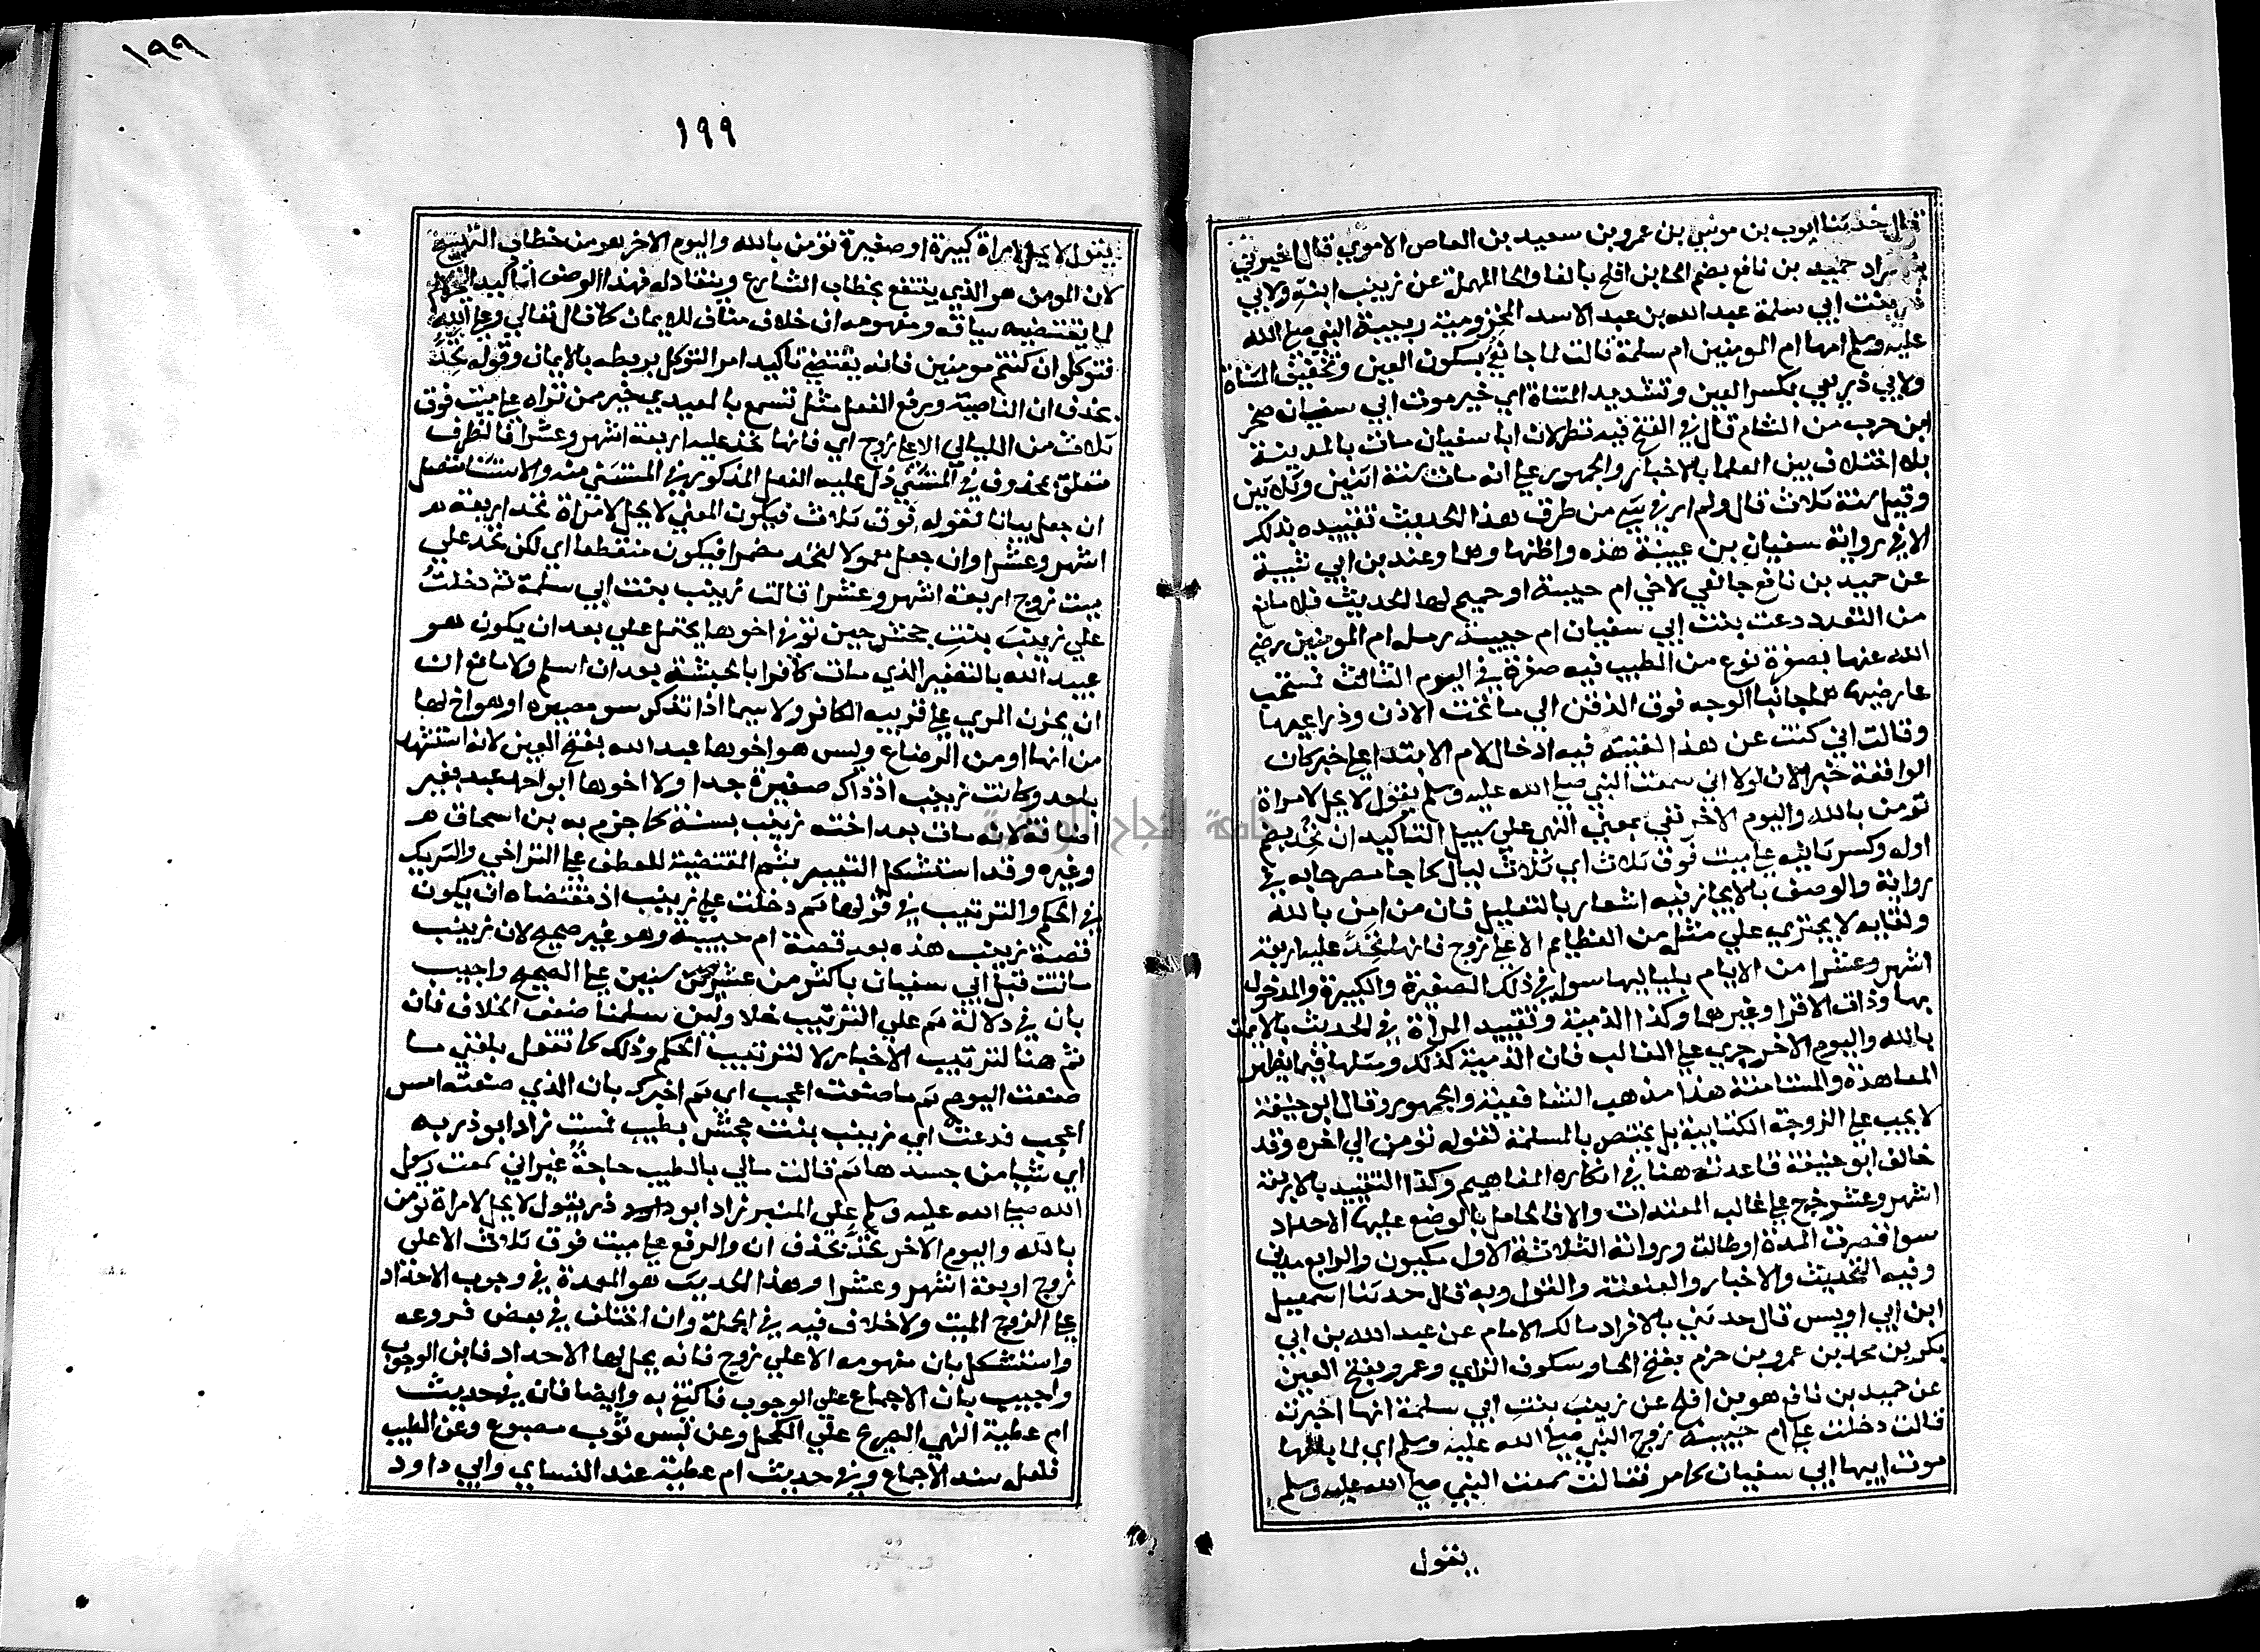 قال حدثنا ايوب بن موسي بن عمرو بن سعيد بن العاص الاموي قال اخبرني
بالافراد حميد بن نافع بضم الحا بن افلح بالفا والحا المهملة عن زينب ابنة ولابي
ذر بنت ابي سلمة عبد الله بن عبد الاسد المخزومية ربيبة النبي صلي الله
عليه وسلم امها ام المومنين ام سلمة قالت لما جا نعي بسكون العين وتخفيف المثناة
ولابي ذر نعي بكسر العين وتشديد المثناة اي خبر موت ابي سفيان صخر
ابن حرب من الشام قال في الفتح فيه نظر لان ابا سفيان مات بالمدينة
بلا اختلاف بين العلما بالاخبار والجمهور علي انه مات سنة اثنين وثلاثين
وقيل سنة ثلاث قال ولم ار في شي من طرق هذا الحديث تقييده بذلك
الا في رواية سفيان بن عيينة هذه واظنها وهما وعند بن ابي شيبة
عن حميد بن نافع جا نعي لاخي ام حبيبة او حميم لها الحديث فلا مانع
من التعدد دعت بنت ابي سفيان ام حبيبة رملة ام المومنين رضي
الله عنها بصفرة نوع من الطيب فيه صفرة في اليوم الثالث فمسحت
عارضيها هما جانبا الوجه فوق الذقن الي ما تحت الاذن وذراعيها
وقالت اني كنت عن هذا لغنية فيه ادخال لام الابتدا علي خبر كان
الواقعة خبرا لان لولا اني سمعت النبي صلي الله عليه وسلم يقول لا يحل لامراة
تومن بالله واليوم الاخر نفي بمعني النهي علي سبيل التاكيد ان تحد بضم
اوله وكسر ثانيه علي ميت فوق ثلاث اي ثلاث ليال كما جا مصرحا به في
رواية والوصف بالايمان فيه اشعار بالتعليل فان من امن بالله
ولقايه لا يجتري علي مثله من العظايم الا علي زوج فانها تحد عليه اربعة
اشهر وعشرا من الايام بلياليها سوا في ذلك الصغيرة والكبيرة والمدخول
بها وذات الاقرا وغيرهما وكذا الذمية وتقييد المراة في الحديث بالايمان
بالله واليوم الاخر جري علي الغالب فان الذمية كذلك ومثلها فيما يظهر
المعاهدة والمستامنة هذا مذهب الشافعية والجمهور وقال ابو حنيفة
لا يجب علي الزوجة الكتابية بل يختص بالمسلمة لقوله تومن الي اخره وقد
خالف ابو حنيفة قاعدته هنا في انكاره المفاهيم وكذا التقييد بالاربعة
اشهر وعشر خرج علي غالب المعتدات والا فالحامل بالوضع عليها الاحداد
سوا قصرت المدة او طالت ورواية الثلاثة الاول مكيون والرابع مدني
وفيه التحديث والاخبار والعنعنة والقول وبه قال حدثنا اسمعيل
ابن ابي اويس قال حدثني بالافراد مالك الامام عن عبد الله بن ابي
بكر بن محمد بن عمرو بن حزم بفتح الحا وسكون الزاي وعمرو بفتح العين
عن حميد بن نافع هو بن افلح عن زينب بنت ابي سلمة انها اخبرته
قالت دخلت علي ام حبيبة زوج النبي صلي الله عليه وسلم اي لما بلغها
موت ابيها ابي سفيان كما مر فقالت سمعت النبي صلي الله عليه وسلم
يقول
١٩٩
١٩٩
يقول لا يحل لامراة كبيرة او صغيرة تومن بالله واليوم الاخر هو من خطاب التهييج
لان المومن هو الذي ينتفع بخطاب الشارع وينقاد له فهذا الوصف لتاكيد التحريم
لما يقتضيه سياقه ومفهومه ان خلافه مناف للايمان كما قال تعالي وعلي الله
فتوكلوا ان كنتم مومنين فانه يقتضي تاكيد امر التوكل بربطه بالايمان وقوله تحد
بحذف ان الناصبة ورفع الفعل مثل تسمع بالمعيدي خير من تراه علي ميت فوق
ثلاث من الليالي الا علي زوج اي فانها تحد عليه اربعة اشهر وعشرا فالظرف
متعلق بمحذوف في المستثني دل عليه الفعل المذكور في المستثني منه والاستثنا متصل
ان جعل بيانا لقوله فوق ثلاث فيكون المعني لا يحل لامراة تحد اربعة
اشهر وعشرا وان جعل معمولا لتحد مضمرا فيكون منقطعا اي لكن تحد علي
ميت زوج اربعة اشهر وعشرا قالت زينب بنت ابي سلمة ثم دخلت
علي زينب بنت جحش حين توفي اخوها يحتمل علي بعد ان يكون هو
عبيد الله بالتصغير الذي مات كافرا بالحبشة بعد ان اسلم ولا مانع ان
ان يحزن المري علي قريبه الكافر ولا سيما اذا تذكر سو مصيره او هو اخ لها
من امها او من الرضاع وليس هو اخوها عبد الله بفتح العين لانه استشهد
باحد وكانت زينب اذ ذاك صغيرة جدا ولا اخوها ابو احمد عبد بغير
اضافة لانه مات بعد اخته زينب بسنة كما جزم به بن اسحاق
وغيره وقد استشكل التعبير بثم المقتضية للعطف علي التراخي والتشريك
في الحكم والترتيب في قولها ثم دخلت علي زينب اذ مقتضاه ان يكون
قصة زينب هذه بعد قصة ام حبيبة وهو غير صحيح لان زينب
ماتت قبل ابي سفيان باكثر من عشر سنين علي الصحيح واجيب
بان في دلالة ثم علي الترتيب خلا ولين سلمنا ضعف الخلاف فان
ثم هنا لترتيب الاخبار لا لترتيب الحكم وذلك كما تقول بلغني ما
صنعت اليوم ثم ما صنعت اعجب اي ثم اخبرك بان الذي صنعته امس
اعجب فدعت اي زينب بنت جحش بطيب فمست زاد ابو ذر به
اي شيا من جسدها ثم قالت مالي بالطيب حاجة غير اني سمعت رسول
الله صلي الله عليه وسلم علي المنبر زاد ابو داود ذر يقول لا يحل لامراة تومن
بالله واليوم الاخر تحد بحذف ان والرفع علي ميت فوق ثلاث الا علي
زوج اربعة اشهر وعشرا وهذا الحديث هو العمدة في وجوب الاحداد
علي الزوج الميت ولا خلاف فيه في الجملة وان اختلف في بعض فروعه
واستشكل بان مفهومه الا علي زوج فانه يحل لها الاحداد فاين الوجوب
واجيب بان الاجماع علي الوجوب فاكتفي به وايضا فان في حديث
ام عطية النهي الصريح علي الكحل وعن لبس ثوب مصبوغ وعن الطيب
فلعل سند الاجماع وفي حديث ام عطية عند النساي وابي داود
جامعة النجاح الوطنية